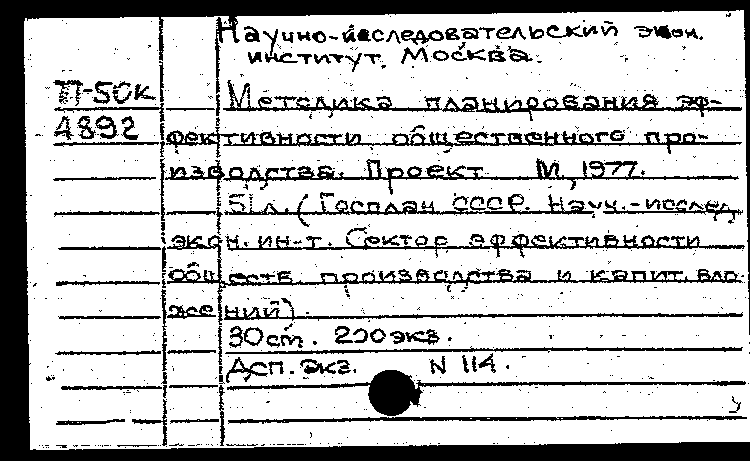 Научно-исследовательский экон.
институт. Москва.
П-50к Методика планирования эф-
4892 фективности общественного про-
изводства. Проект М., 1977.
51 л. (Госплан СССР. Науч.-исслед.
экон. ин-т. Сектор эффективности
обществ. производства и капит. вло
жений)
30см. 200экз.
Дсп. экз. N 114.
у